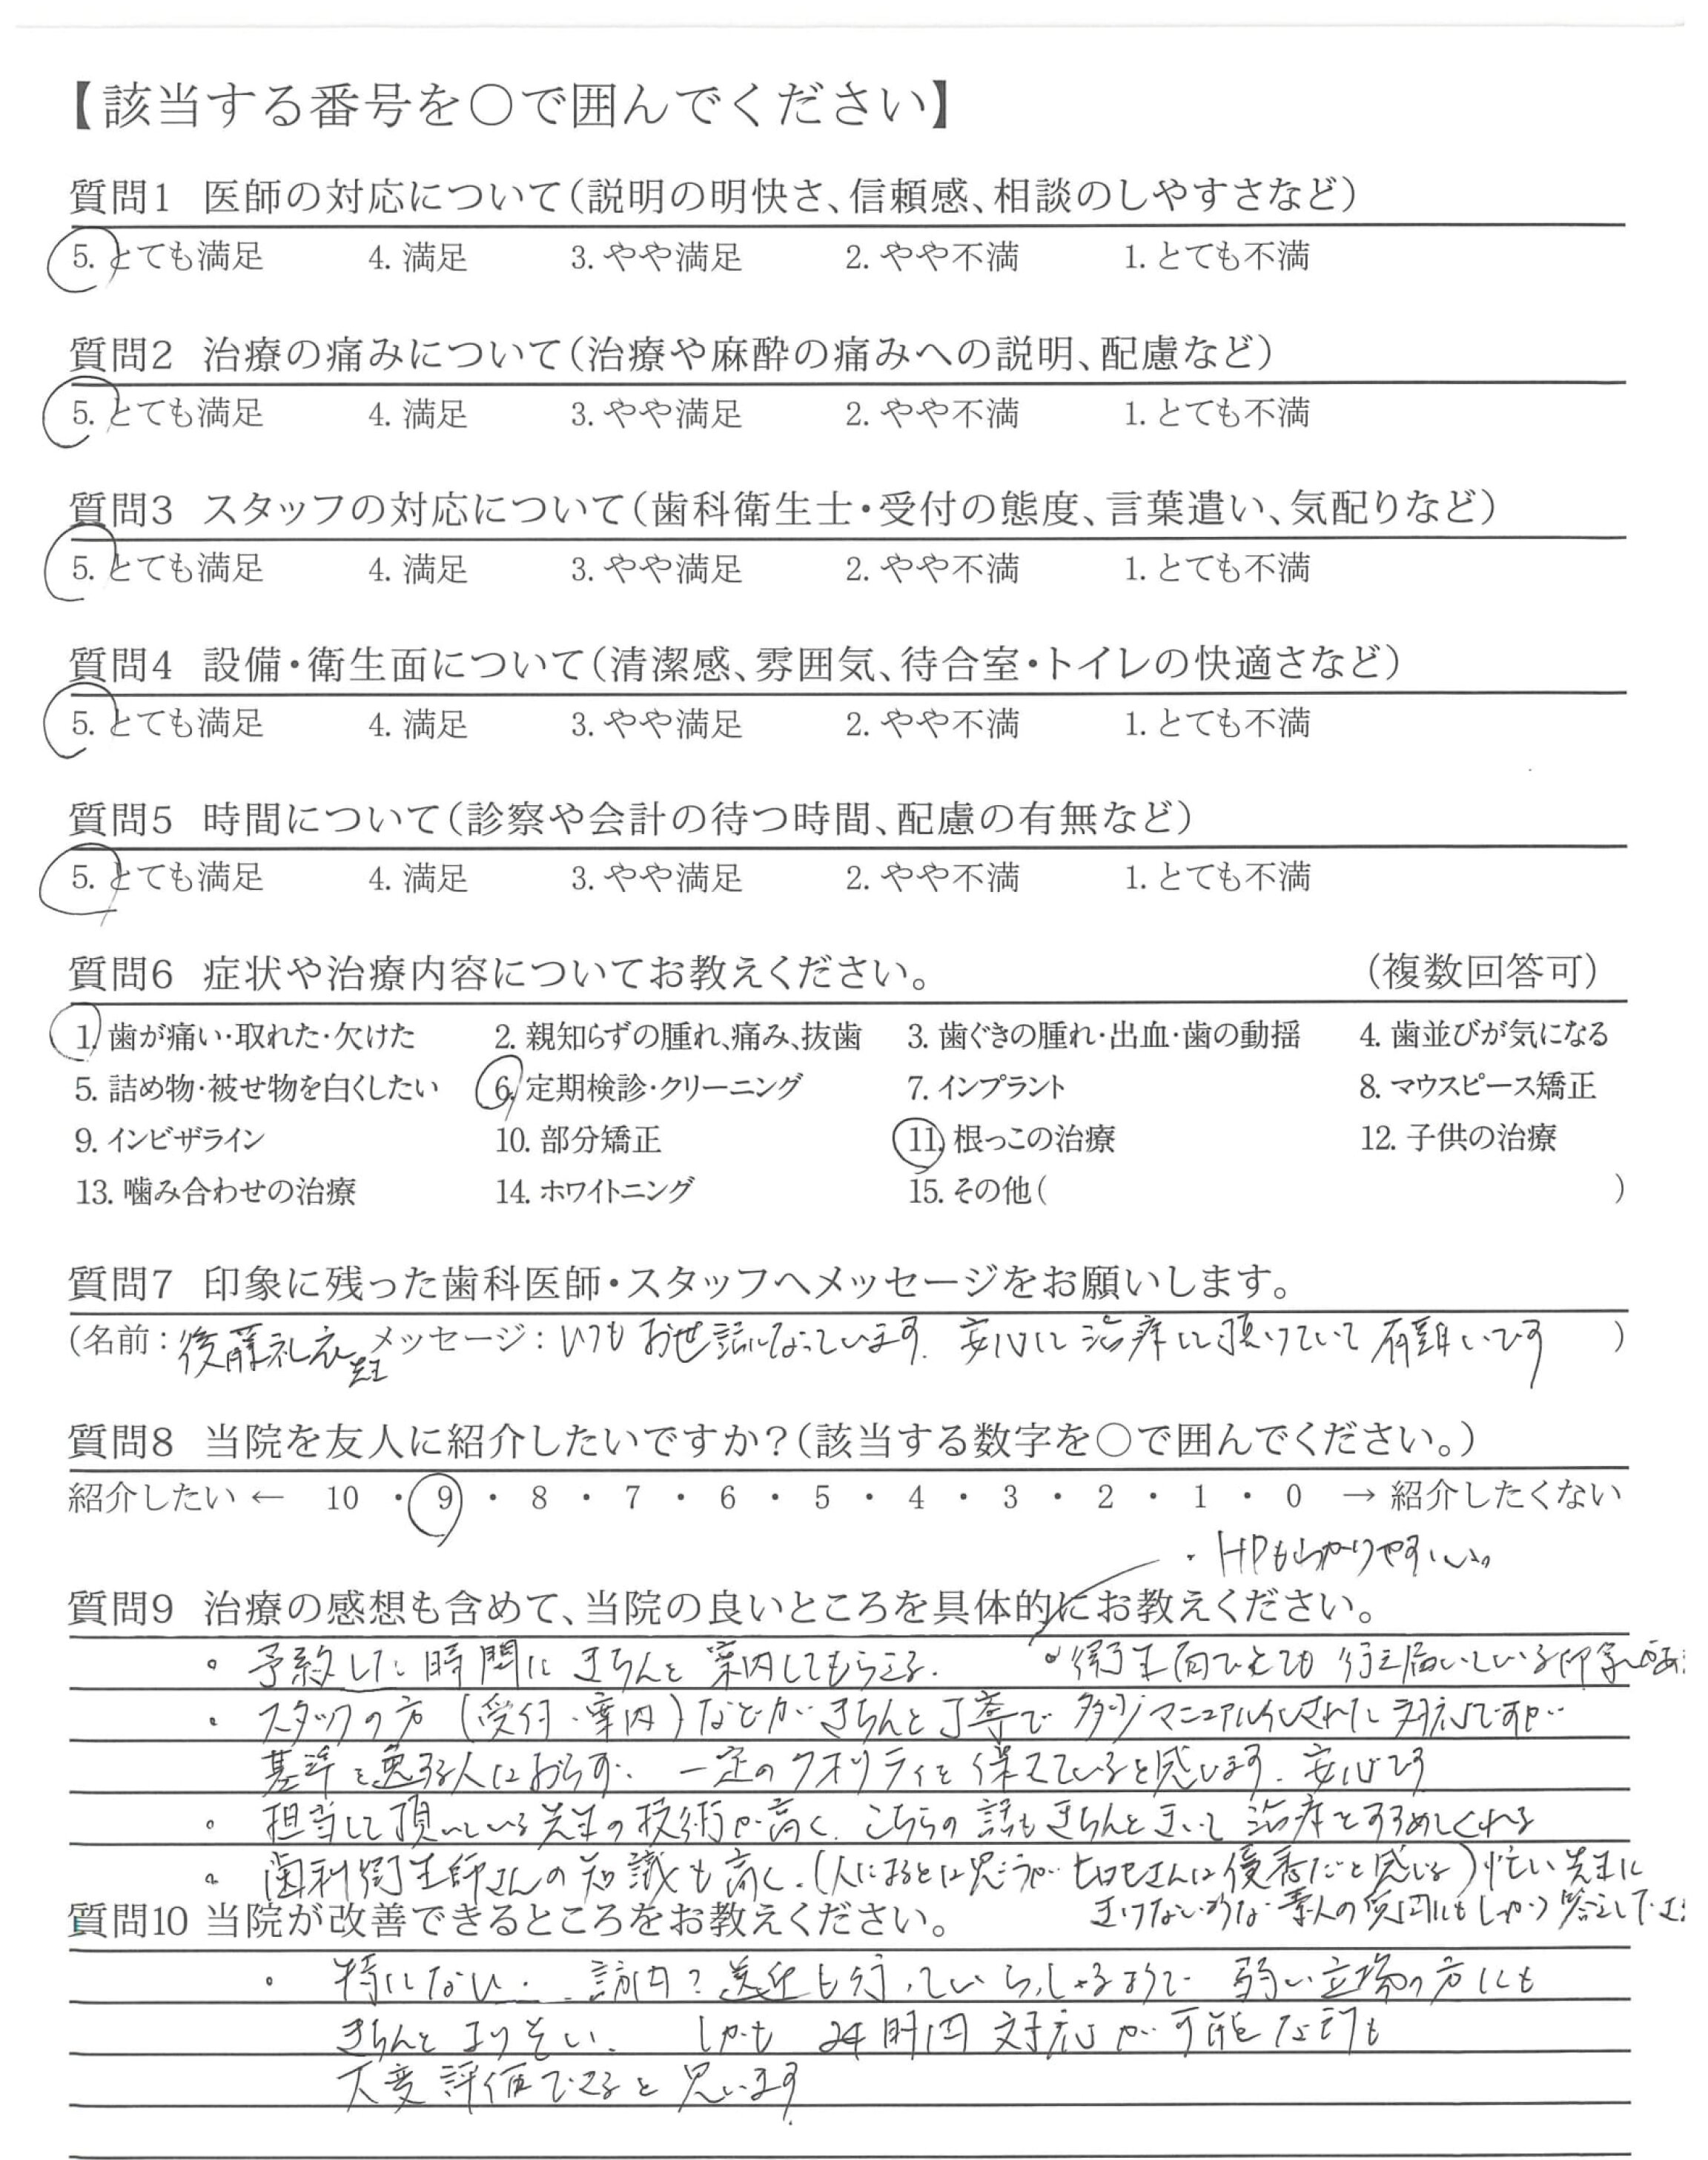 【該当する番号を○で囲んでください】
質問1 医師の対応について(説明の明快さ、信頼感、相談のしやすさなど)
5. とても満足 4. 満足 3. やや満足 2. やや不満 1. とても不満
質問2 治療の痛みについて(治療や麻酔の痛みへの説明、配慮など)
5. とても満足 4. 満足 3. やや満足 2. やや不満 1. とても不満
質問3 スタッフの対応について(歯科衛生士・受付の態度、言葉遣い、気配りなど)
5. とても満足 4. 満足 3. やや満足 2. やや不満 1. とても不満
質問4 設備・衛生面について(清潔感、雰囲気、待合室・トイレの快適さなど)
5. とても満足 4. 満足 3. やや満足 2. やや不満 1. とても不満
質問5 時間について(診察や会計の待つ時間、配慮の有無など)
5. とても満足 4. 満足 3. やや満足 2. やや不満 1. とても不満
質問6 症状や治療内容についてお教えください。 (複数回答可)
1. 歯が痛い・取れた・欠けた 2. 親知らずの腫れ、痛み、抜歯 3. 歯ぐきの腫れ・出血・歯の動揺 4. 歯並びが気になる
5. 詰め物・被せ物を白くしたい 6. 定期検診・クリーニング 7. インプラント 8. マウスピース矯正
9. インビザライン 10. 部分矯正 11. 根っこの治療 12. 子供の治療
13. 噛み合わせの治療 14. ホワイトニング 15. その他( )
質問7 印象に残った歯科医師・スタッフへメッセージをお願いします。
(名前: 後藤礼衣先生 メッセージ: いつもお世話になっています。安心して治療して頂けていて有難いです )
質問8 当院を友人に紹介したいですか?(該当する数字を○で囲んでください。)
紹介したい ← 10 ・ 9 ・ 8 ・ 7 ・ 6 ・ 5 ・ 4 ・ 3 ・ 2 ・ 1 ・ 0 → 紹介したくない
・HPもわかりやすい。
質問9 治療の感想も含めて、当院の良いところを具体的にお教えください。
。予約した時間にきちんと案内してもらえる。 。衛生面でとても行き届いている印象
・スタッフの方(受付・案内)などがきちんと丁寧で 多少マニュアル化された対応ですが
基準を逸する人はおらず、一定のクオリティを保てていると感じます。安心です
。担当して頂いている先生の技術が高く、こちらの話もきちんときいて治療をすすめてくれる
。歯科衛生師さんの知識も高く、(人によるとは思うが さんは優秀だと感じる)忙しい先生に
きけないような素人の質問にもしっかり答えて
質問10 当院が改善できるところをお教えください。
。特にない。訪問?送迎も行っていらっしゃるようで 弱い立場の方にも
きちんとよりそい、しかも24時間対応が可能な所も
大変評価できると思います。